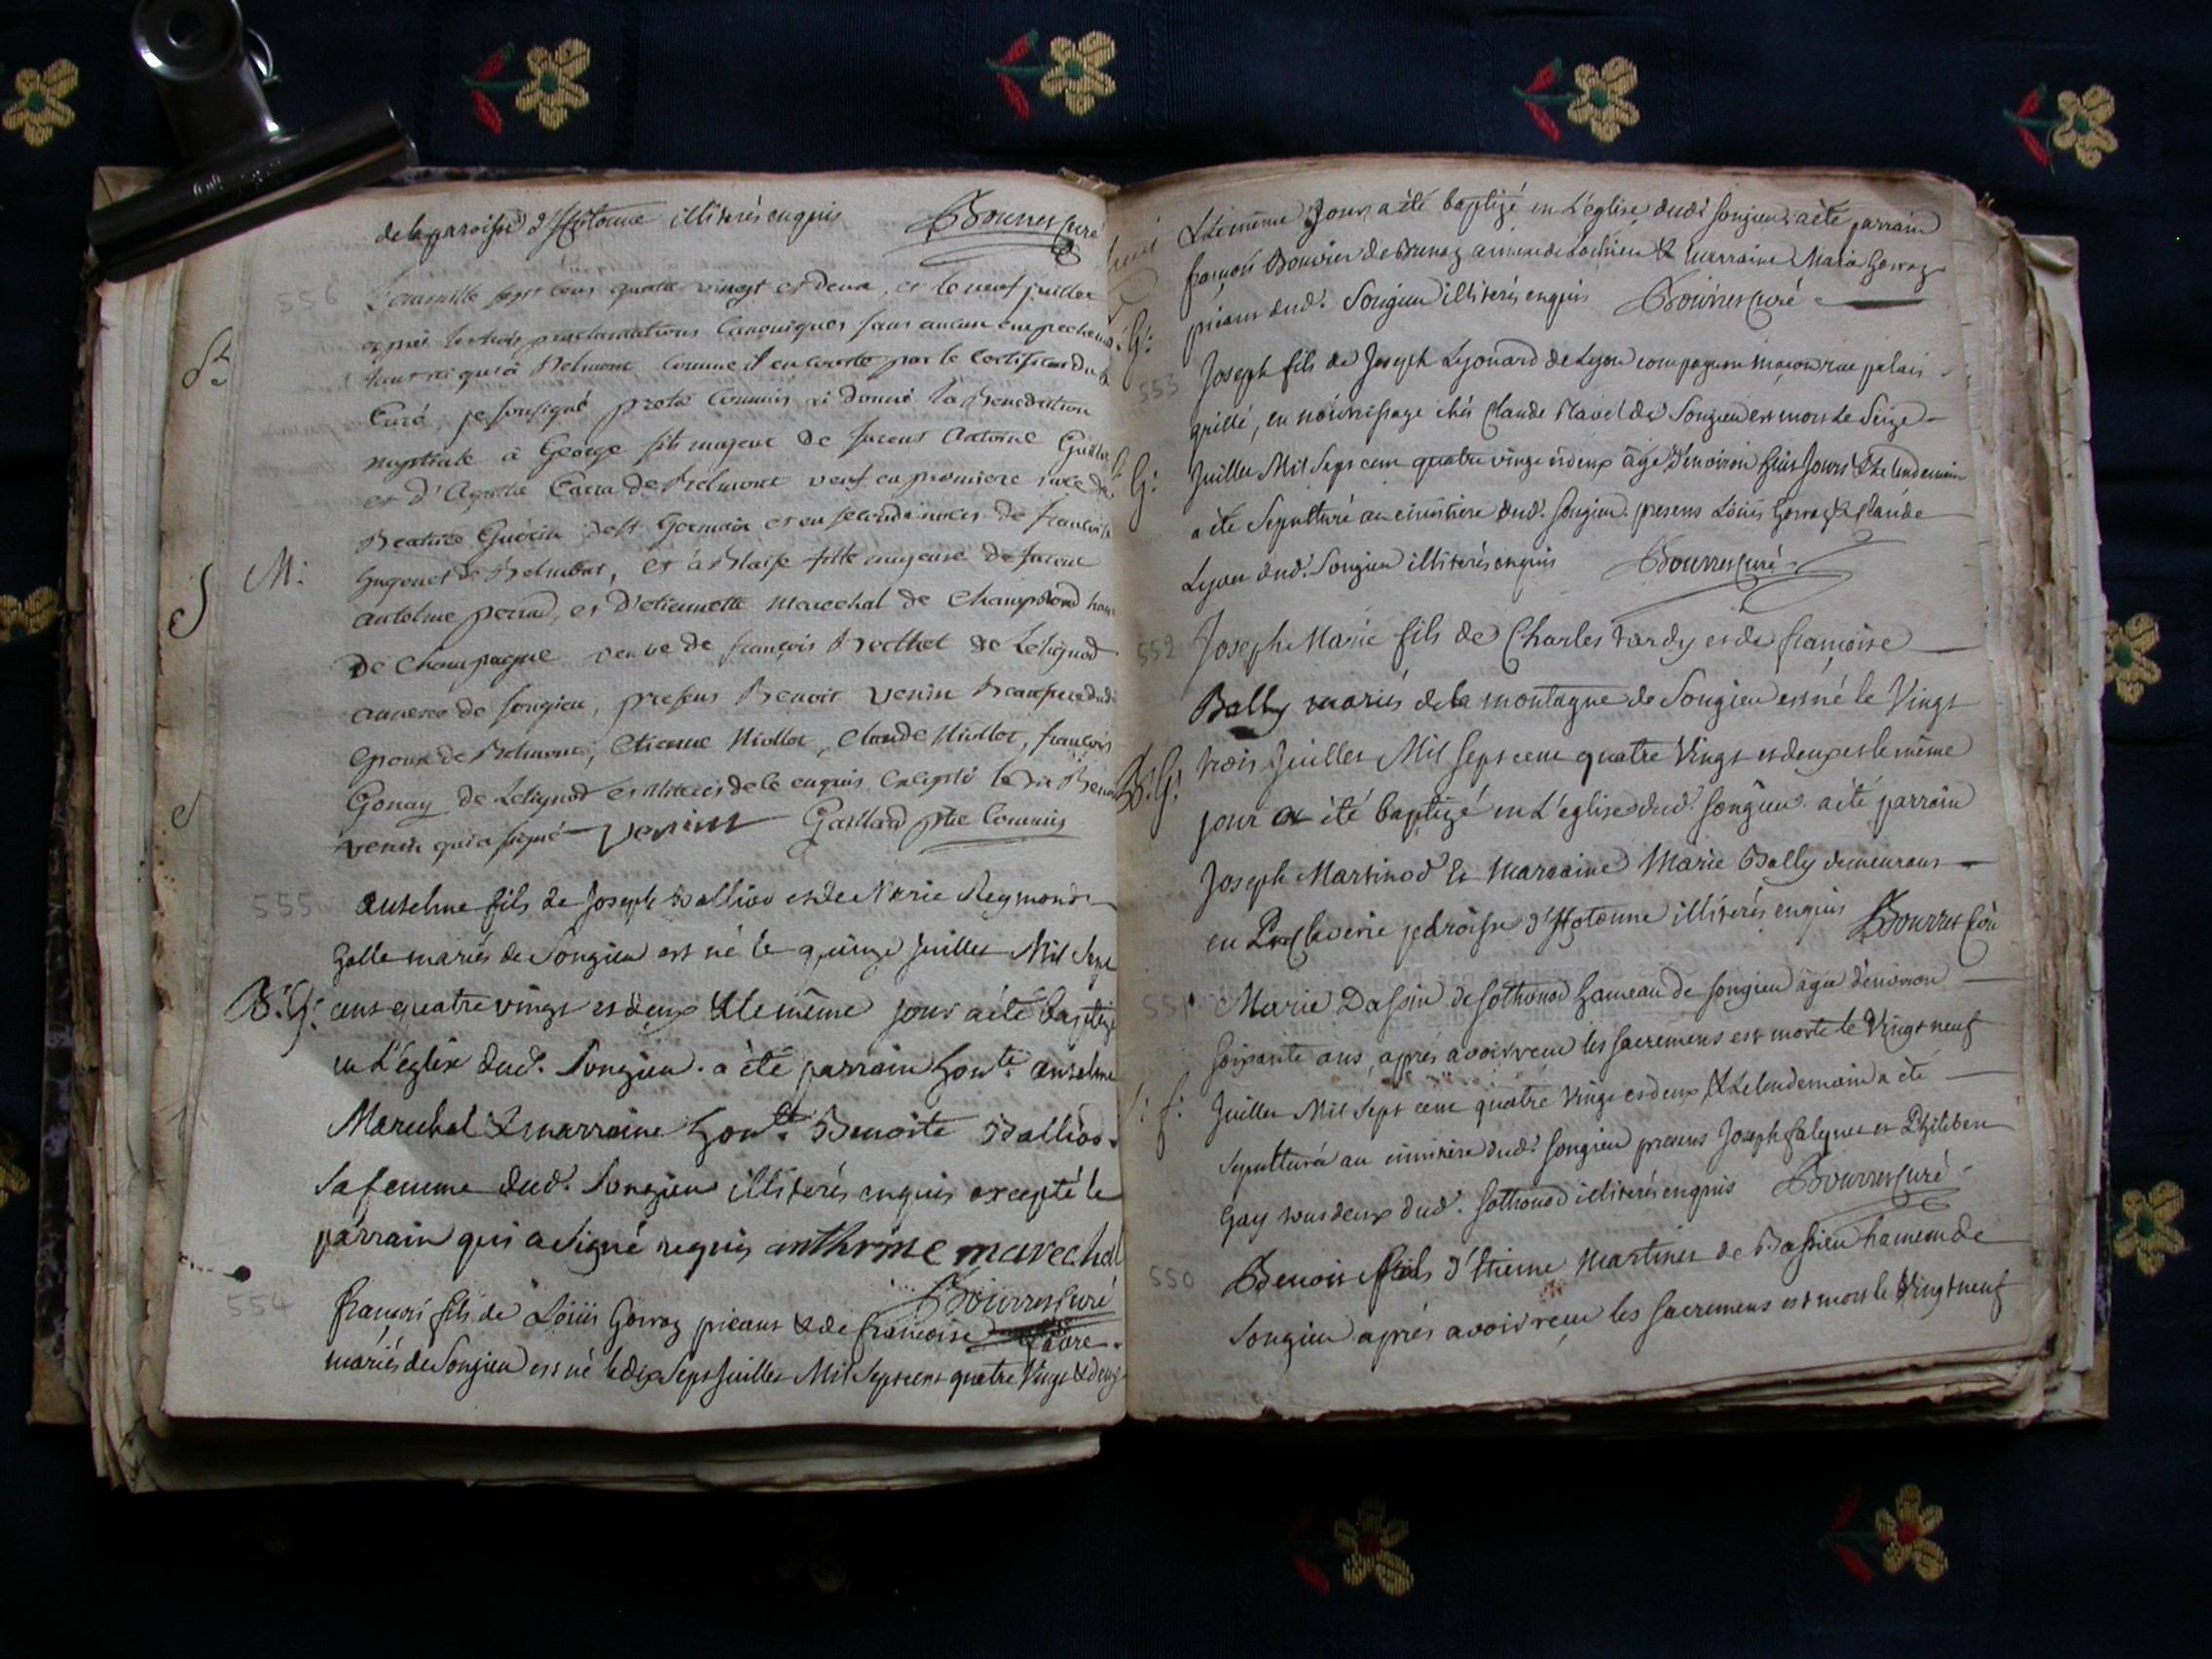 de la paroisse d'Hotonne illiterés enquis Bourret Curé
556
L'an mille sept cens quatre vingt et deux, et le neuf juillet
après les trois proclamations canoniques sans aucun empechement
tant ici qu'à Belmont comme il en conste par le certificat du
Curé, je soussigné pretre commis ai donné la Benediction
nuptiale à George fils majeur de furent Antoine
et d'Agathe de Belmont veuf en premiere noce de
Beatrice Guérin de St Germain et en seconde noces de françoise
hugonet de Belmont, et à Blaise fille majeure de furent
M:
antelme perrad, et d'etiennette marechal de Champriond hameau
de Champagne veuve de françois Berthet de Lelignod
annexe de songieu, presens Benoit venin Beaupere dudi
epoux de Belmont, etienne Miollet, claude Miollet, françois
Gonay de Lelignod et illiterés de le enquis excepté le dit Benoit
venin qui a signé venin Gaillard ptre Commis
555
Antelme fils de Joseph Balliod et de Marie Reymonde
Galle mariés de Songieu est né le quinze juillet Mil sept
B: G: cens quatre vingt et deux & le même jour a été baptizé
en L'église dud. Songieu. a été parrain hon.te antelme
Marechal & marraine hon.te Benoite Balliod
sa femme dud. Songieu illiterés enquis excepté le
parrain qui a signé requis anthelme marechal
Bourret Curé
554
françois fils de Loüis Gorraz picaut & de françoise favre
mariés de Songieu est né le dix Sept juillet Mil Sept cent quatre Vingt & deux
& le même jour a été baptizé en L'église dudi songieu, a été parrain
françois Bouvier de Brenaz annexe de Lochieu & marraine Maria Gorraz
picaut dud. Songieu illiterés enquis Bourret Curé
G:
553
Joseph fils de Joseph Lyonard de Lyon compagnon maçon rue palais
grillé, en nourrissage chés Claude Ravet de Songieu est mort le Seize
G:
Juillet Mil Sept cent quatre vingt et deux âgé d'environ huit jours & le lendemain
a été Sepulturé au cimetière dud. songieu. presens Loüis Gorraz & Claude
Lyon dud. Songieu illiterés enquis Bourret Curé
552
Joseph Marie fils de Charles tardy et de françoise
Bally mariés de la montagne de Songieu est né le Vingt
B: G: trois Juillet Mil Sept cent quatre Vingt et deux et le même
jour a été baptizé en L'eglise dud. songieu. a été parrain
Joseph Martinod & marraine Marie Bally demeurans
en paroisse d'Hotonne illiterés enquis Bourret Curé
551
Marie Dassin de sothonod hameau de songieu agée d'environ
soixante ans, après avoir reçu les sacremens est morte le Vingt neuf
S: f: Juillet Mil Sept cent quatre Vingt et deux, & le lendemain a été
sepulturée au cimitière dud. songieu presens Joseph falquet et Philibert
Gay tous deux dud. sothonod illiterés enquis Bourret Curé
550
Benoit fils d'Etienne Martinet de Bassieu hameau de
Songieu après avoir reçu les sacremens est mort le Vingt neuf